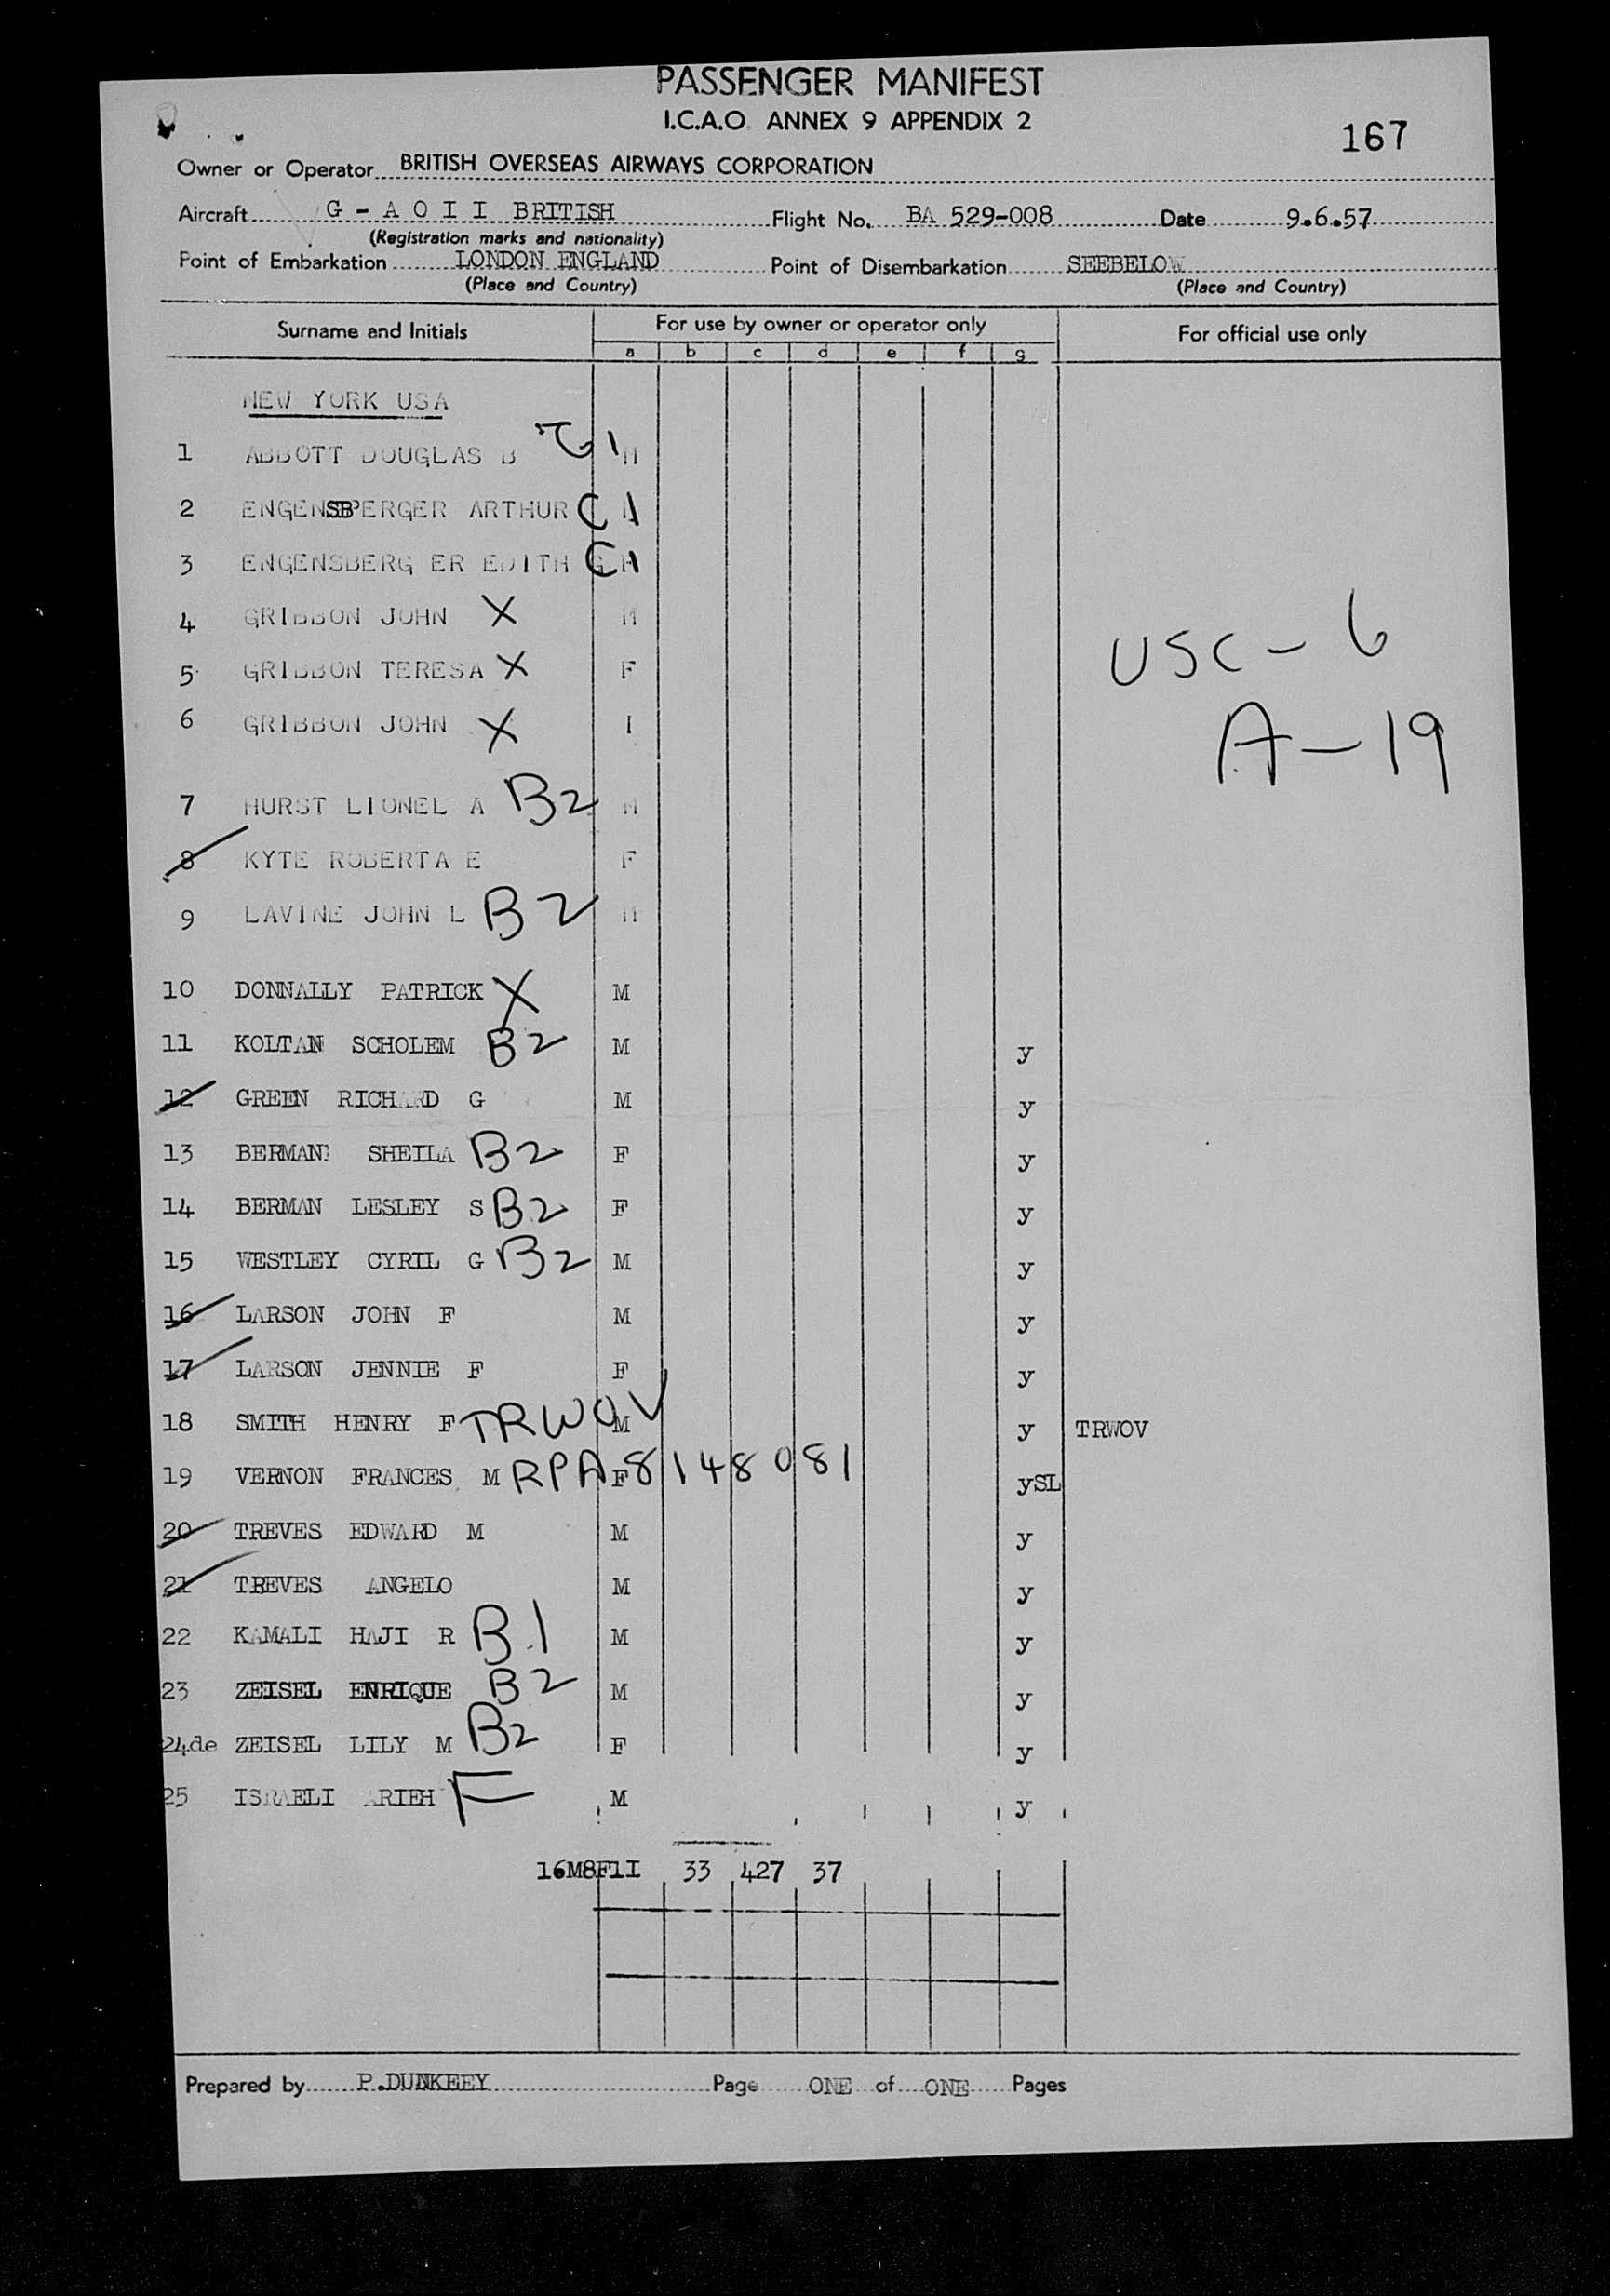 PASSENGER MANIFEST
I.C.A.O. ANNEX 9 APPENDIX 2
167
Owner or Operator BRITISH OVERSEAS AIRWAYS CORPORATION
Aircraft G - A O I I BRITISH Flight No. BA 529-008 Date 9.6.57
(Registration marks and nationality)
Point of Embarkation LONDON ENGLAND Point of Disembarkation SEEBELOW
(Place and Country) (Place and Country)
Surname and Initials For use by owner or operator only For official use only
a b c d e f g
NEW YORK USA
1 ABBOTT DOUGLAS B G1 M
2 ENGENSBERGER ARTHUR C1
3 ENGENSBERG ER EDITH G C1
4 GRIBBON JOHN X M
5 GRIBBON TERESA X F
USC - 6
6 GRIBBON JOHN X I
A - 19
7 HURST LIONEL A B2 M
8 KYTE ROBERTA E F
9 LAVINE JOHN L B2 M
10 DONNALLY PATRICK X M
11 KOLTAN SCHOLEM B2 M y
12 GREEN RICHARD G M y
13 BERMAN SHEILA B2 F y
14 BERMAN LESLEY S B2 F y
15 WESTLEY CYRIL G B2 M y
16 LARSON JOHN F M y
17 LARSON JENNIE F F y
18 SMITH HENRY F TRWOV M y TRWOV
19 VERNON FRANCES M RPA 8148081 F ySL
20 TREVES EDWARD M M y
21 TREVES ANGELO M y
22 KAMALI HAJI R B1 M y
23 ZEISEL ENRIQUE B2 M y
24 de ZEISEL LILY M B2 F y
25 ISRAELI ARIEH F M y
16M8F1I 33 427 37
Prepared by P.DUNKEEY Page ONE of ONE Pages